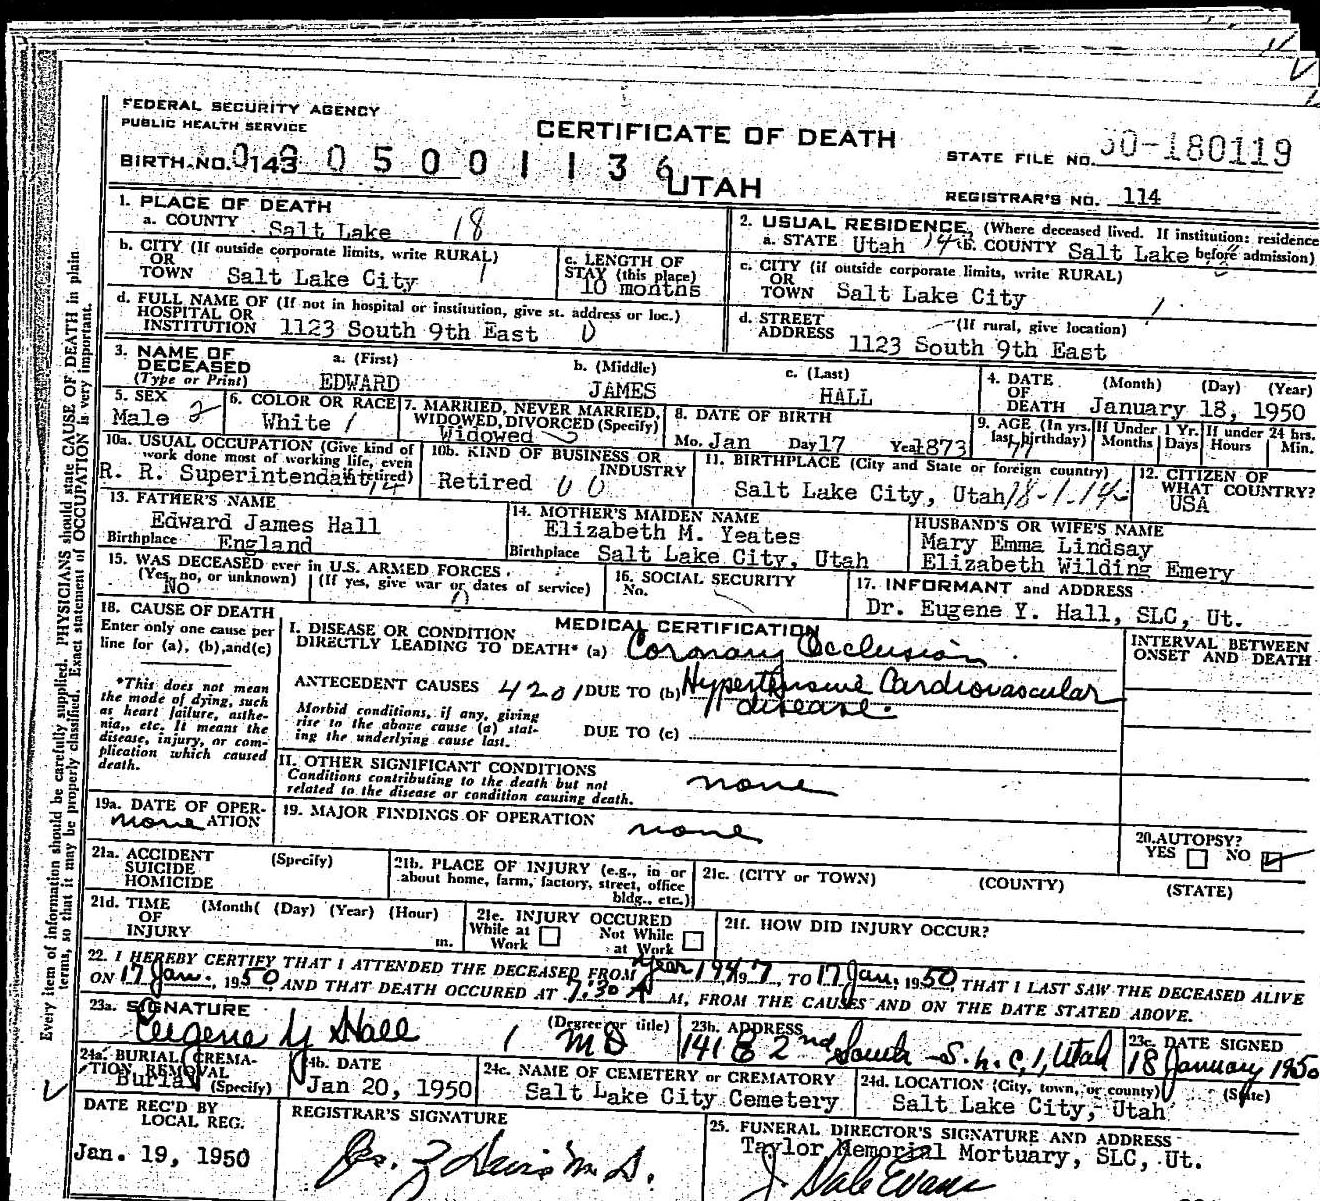 FEDERAL SECURITY AGENCY
PUBLIC HEALTH SERVICE
CERTIFICATE OF DEATH
STATE FILE NO. 50-180119
BIRTH NO. 0143 0 0 5 0 0 1 1 3 6
UTAH
REGISTRAR'S NO. 114
1. PLACE OF DEATH
a. COUNTY Salt Lake 18
2. USUAL RESIDENCE (Where deceased lived. If institution: residence before admission)
a. STATE Utah b. COUNTY Salt Lake
b. CITY (If outside corporate limits, write RURAL)
OR
TOWN Salt Lake City 1
c. LENGTH OF
STAY (this place)
10 months
c. CITY (if outside corporate limits, write RURAL)
OR
TOWN Salt Lake City
d. FULL NAME OF (If not in hospital or institution, give st. address or loc.)
HOSPITAL OR
INSTITUTION 1123 South 9th East 0
d. STREET (If rural, give location)
ADDRESS 1123 South 9th East
3. NAME OF
DECEASED
(Type or Print)
a. (First)
EDWARD
b. (Middle)
JAMES
c. (Last)
HALL
4. DATE (Month) (Day) (Year)
OF
DEATH January 18, 1950
5. SEX
Male 2
6. COLOR OR RACE
White 1
7. MARRIED, NEVER MARRIED,
WIDOWED, DIVORCED (Specify)
Widowed
8. DATE OF BIRTH
Mo. Jan Day 17 Year 1873
9. AGE (In yrs. last birthday)
77
If Under 1 Yr.
Months Days
If under 24 hrs.
Hours Min.
10a. USUAL OCCUPATION (Give kind of
work done most of working life, even
if retired)
R. R. Superintendant
10b. KIND OF BUSINESS OR
INDUSTRY
Retired 0 0
11. BIRTHPLACE (City and State or foreign country)
Salt Lake City, Utah 18-1-14
12. CITIZEN OF
WHAT COUNTRY?
USA
13. FATHER'S NAME
Edward James Hall
Birthplace England
14. MOTHER'S MAIDEN NAME
Elizabeth M. Yeates
Birthplace Salt Lake City, Utah
HUSBAND'S OR WIFE'S NAME
Mary Emma Lindsay
Elizabeth Wilding Emery
15. WAS DECEASED ever in U.S. ARMED FORCES
(Yes, no, or unknown) (If yes, give war or dates of service)
No
16. SOCIAL SECURITY
No.
17. INFORMANT and ADDRESS
Dr. Eugene Y. Hall, SLC, Ut.
18. CAUSE OF DEATH
Enter only one cause per
line for (a), (b), and (c)
*This does not mean
the mode of dying, such
as heart failure, asthe-
nia,, etc. It means the
disease, injury, or com-
plication which caused
death.
MEDICAL CERTIFICATION
I. DISEASE OR CONDITION
DIRECTLY LEADING TO DEATH* (a) Coronary Occlusion
ANTECEDENT CAUSES 4201 DUE TO (b) Hypertensive Cardiovascular
disease.
Morbid conditions, if any, giving
rise to the above cause (a) stat-
ing the underlying cause last.
DUE TO (c)
INTERVAL BETWEEN
ONSET AND DEATH
II. OTHER SIGNIFICANT CONDITIONS
Conditions contributing to the death but not
related to the disease or condition causing death.
none
19a. DATE OF OPER-
ATION
none
19. MAJOR FINDINGS OF OPERATION
none
20. AUTOPSY?
YES NO
21a. ACCIDENT (Specify)
SUICIDE
HOMICIDE
21b. PLACE OF INJURY (e.g., in or
about home, farm, factory, street, office
bldg., etc.)
21c. (CITY or TOWN) (COUNTY) (STATE)
21d. TIME (Month( (Day) (Year) (Hour)
OF
INJURY m.
21e. INJURY OCCURED
While at Work Not While at Work
21f. HOW DID INJURY OCCUR?
22. I HEREBY CERTIFY THAT I ATTENDED THE DECEASED FROM year 1947, TO 17 Jan, 1950 THAT I LAST SAW THE DECEASED ALIVE
ON 17 Jan., 1950, AND THAT DEATH OCCURED AT 7:30 A M, FROM THE CAUSES AND ON THE DATE STATED ABOVE.
23a. SIGNATURE (Degree or title)
Eugene Y Hall 1 MD
23b. ADDRESS
141 E 2nd South S.L.C, 1, Utah
23c. DATE SIGNED
18 January 1950
24a. BURIAL, CREMA-
TION, REMOVAL
(Specify)
Burial
24b. DATE
Jan 20, 1950
24c. NAME OF CEMETERY or CREMATORY
Salt Lake City Cemetery
24d. LOCATION (City, town, or county) (State)
Salt Lake City, Utah
DATE REC'D BY
LOCAL REG.
Jan. 19, 1950
REGISTRAR'S SIGNATURE
25. FUNERAL DIRECTOR'S SIGNATURE AND ADDRESS
Taylor Memorial Mortuary, SLC, Ut.
J. Dale Evans
Every item of information should be carefully supplied. PHYSICIANS should state CAUSE OF DEATH in plain
terms, so that it may be properly classified. Exact statement of OCCUPATION is very important.